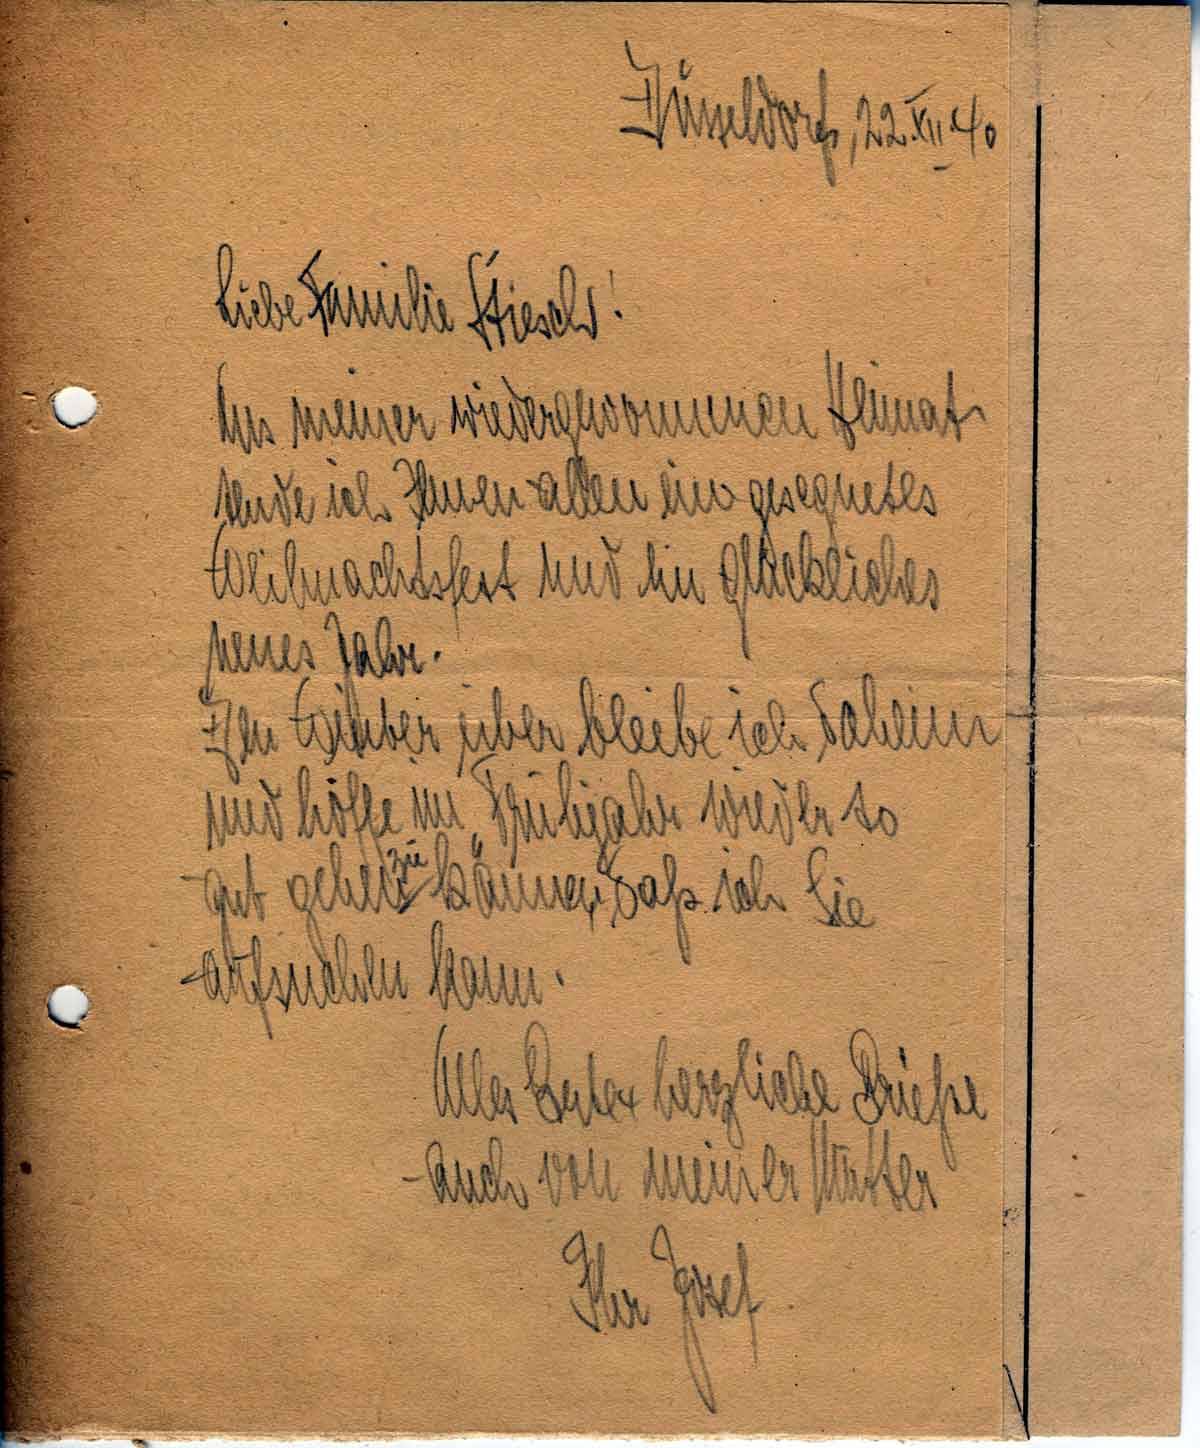 Düsseldorf, 22.XII.40
Liebe Familie Stiesch!
Aus meiner wiedergewonnenen Heimat
sende ich Ihnen allen ein gesegnetes
Weihnachtsfest und ein glückliches
neues Jahr.
Den Winter über bleibe ich daheim
und hoffe im Frühjahr wieder so
gut gehen zu können, daß ich Sie
aufsuchen kann.
Alles Gute herzliche Grüße
auch von meiner Mutter
Ihr Josef